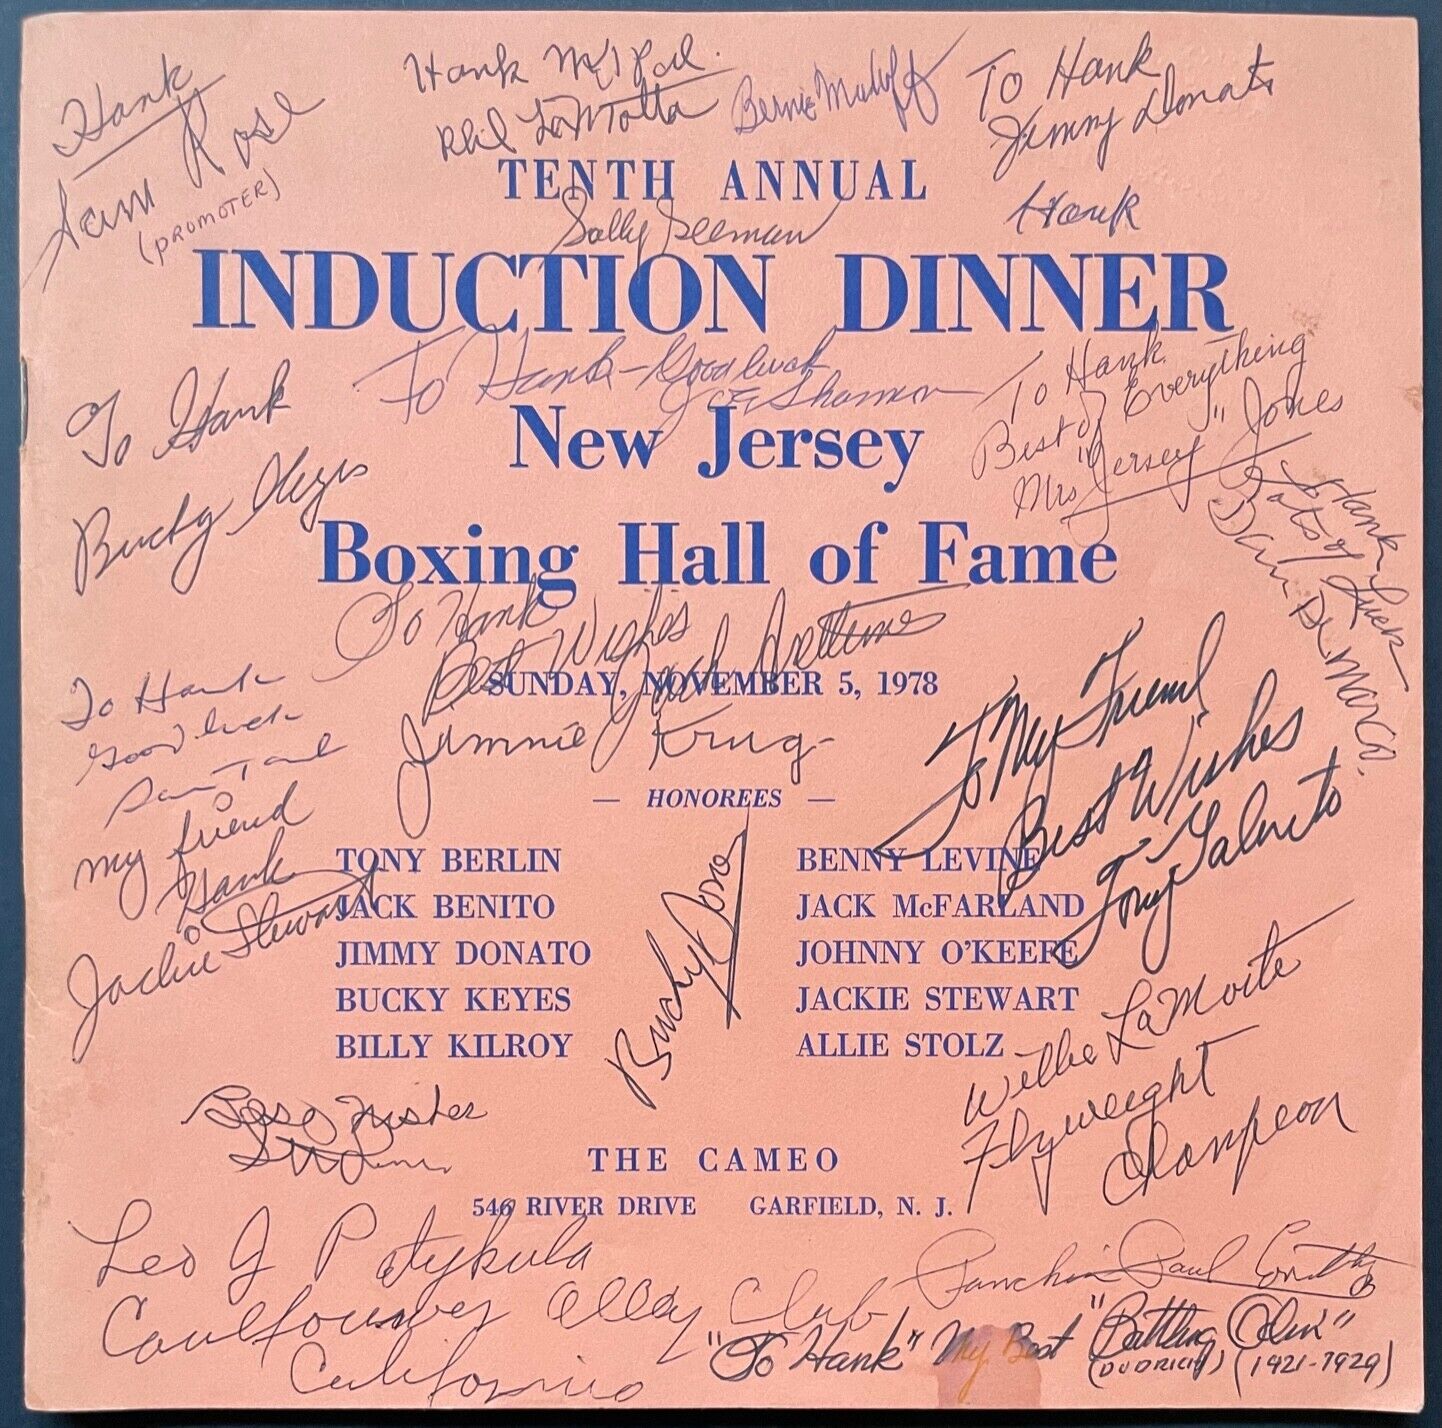 Hank
Sam Rose
(PROMOTER)
Hank
Phil LaMotta
Bernie
To Hank
Jimmy Donato
Hank
TENTH ANNUAL
Sally Seeman
INDUCTION DINNER
To Hank - Good luck
Shannon
To Hank
Best of Everything
Mrs "Jersey" Jones
New Jersey
To Hank
Bucky Keyes
Hank
Lots of Luck
Dan De Marco.
Boxing Hall of Fame
To Hank
Best Wishes
Jack
SUNDAY, NOVEMBER 5, 1978
Jimmie Krug
To Hank
Good luck
Sam
To My Friend
Best Wishes
Tony Galento
— HONOREES —
my friend
Hank
Jackie Stewart
TONY BERLIN
JACK BENITO
JIMMY DONATO
BUCKY KEYES
BILLY KILROY
Bucky Jones
BENNY LEVINE
JACK McFARLAND
JOHNNY O'KEEFE
JACKIE STEWART
ALLIE STOLZ
Willie LaMorte
Flyweight
Champion
Best Wishes
THE CAMEO
546 RIVER DRIVE GARFIELD, N. J.
Leo J Patykula
Caulflower Alley Club,
California
Paul Smith
"To Hank" My Best "Battling Odin"
(1921-1929)